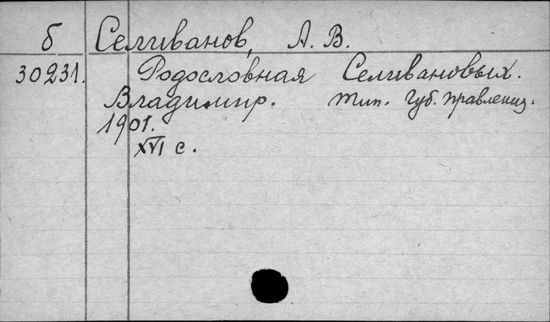 б Селиванов, А. В.
30231. Родословная Селивановых.
Владимир. Тип. Губ. Правления.
1901.
XVI с.